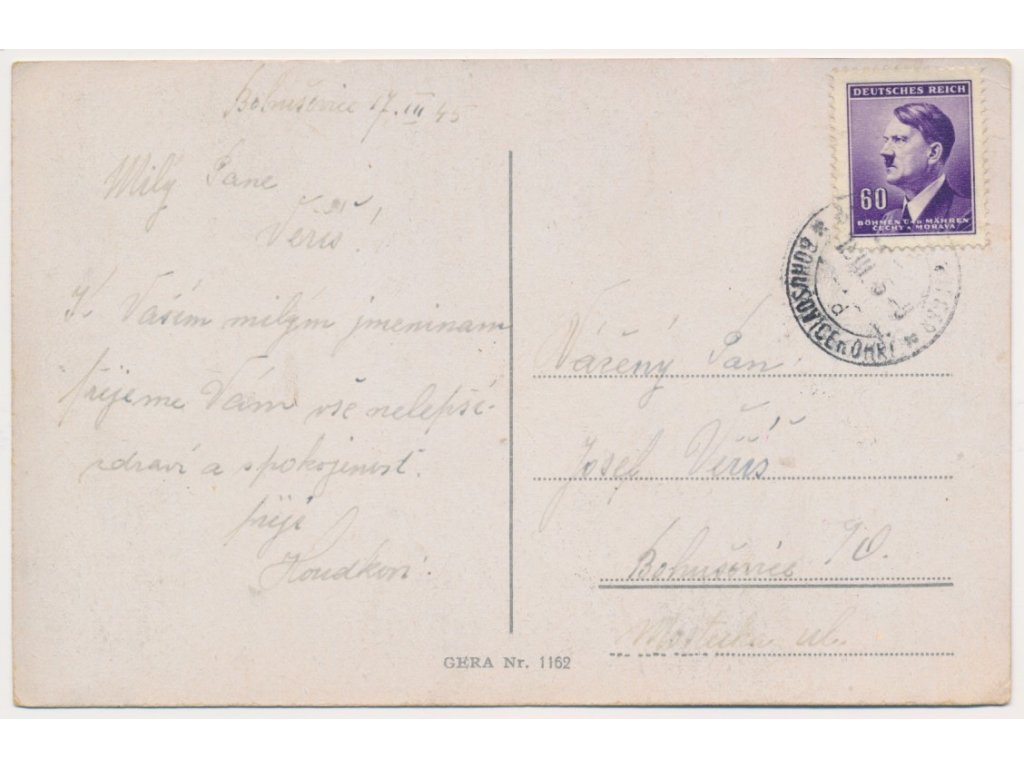 Bohušovice 17. III 45
Milý Pane
Veřis!
K Vašim milým jmeninam
přejeme Vám vše nelepší
zdraví a spokojenost.
přejí
Houdkovi.
DEUTSCHES REICH
60
BÖHMEN U. MÄHREN
ČECHY A MORAVA
BOHUŠOVICE n. OHŘÍ
Vážený Pan
Josef Veřis
Bohušovice /O.
ul.
GERA Nr. 1162